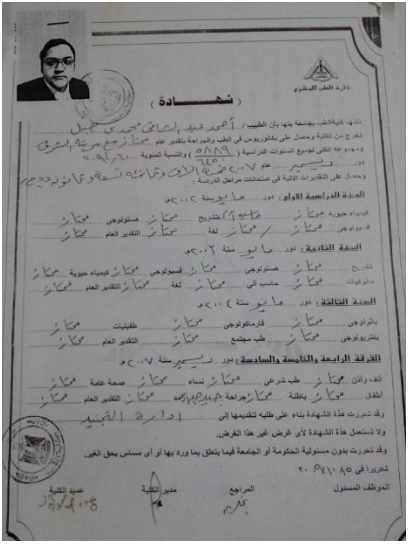 ادارة الطب العلاجي
( شهـــــادة )
تشهد كلية الطب بجامعة بنها بأن الطبيب / أحمد عبد الشافي محمدي
تخرج من الكلية وحصل على بكالوريوس في الطب والجراحة بتقدير عام ممتاز مع مرتبة الشرف
ومجموعه الكلي لجميع السنوات الدراسية ( ٥٨٨٩ / ٦٤٥٠ ) والنسبة المئوية
دور ديسمبر عام ٢٠٠٧
وحصل على التقديرات الآتية في امتحانات مراحل الدراسة :
السنة الدراسية الأولى : دور مايو سنة ٢٠٠٢م
كيمياء حيوية ممتاز تشريح ممتاز هستولوجى ممتاز
فسيولوجى ممتاز لغة ممتاز التقدير العام ممتاز
السنة الثانية : دور مايو سنة ٢٠٠٣م
تشريح ممتاز هستولوجى ممتاز فسيولوجى ممتاز كيمياء حيوية ممتاز
سلوكيات ممتاز حاسب الى ممتاز لغة ممتاز التقدير العام ممتاز
السنة الثالثة : دور مايو سنة ٢٠٠٤م
باثولوجى ممتاز فارماكولوجى ممتاز طفيليات ممتاز
بكتريولوجى ممتاز طب مجتمع ممتاز التقدير العام ممتاز
الفرقة الرابعة والخامسة والسادسة : دور ديسمبر سنة ٢٠٠٧م
أنف وأذن ممتاز طب شرعى ممتاز نساء ممتاز صحة عامة ممتاز
أطفال ممتاز باطنة ممتاز جراحة التقدير العام ممتاز
وقد تحررت هذه الشهادة بناء على طلبه لتقديمها إلى ادارة التجنيد
ولا تستعمل هذه الشهادة لأى غرض غير هذا الغرض.
وقد تحررت بدون مسئولية الحكومة أو الجامعة فيما يتعلق بما ورد بها أو أى مساس بحق الغير.
تحريرا فى
الموظف المسئول المراجع مدير الكلية عميد الكلية